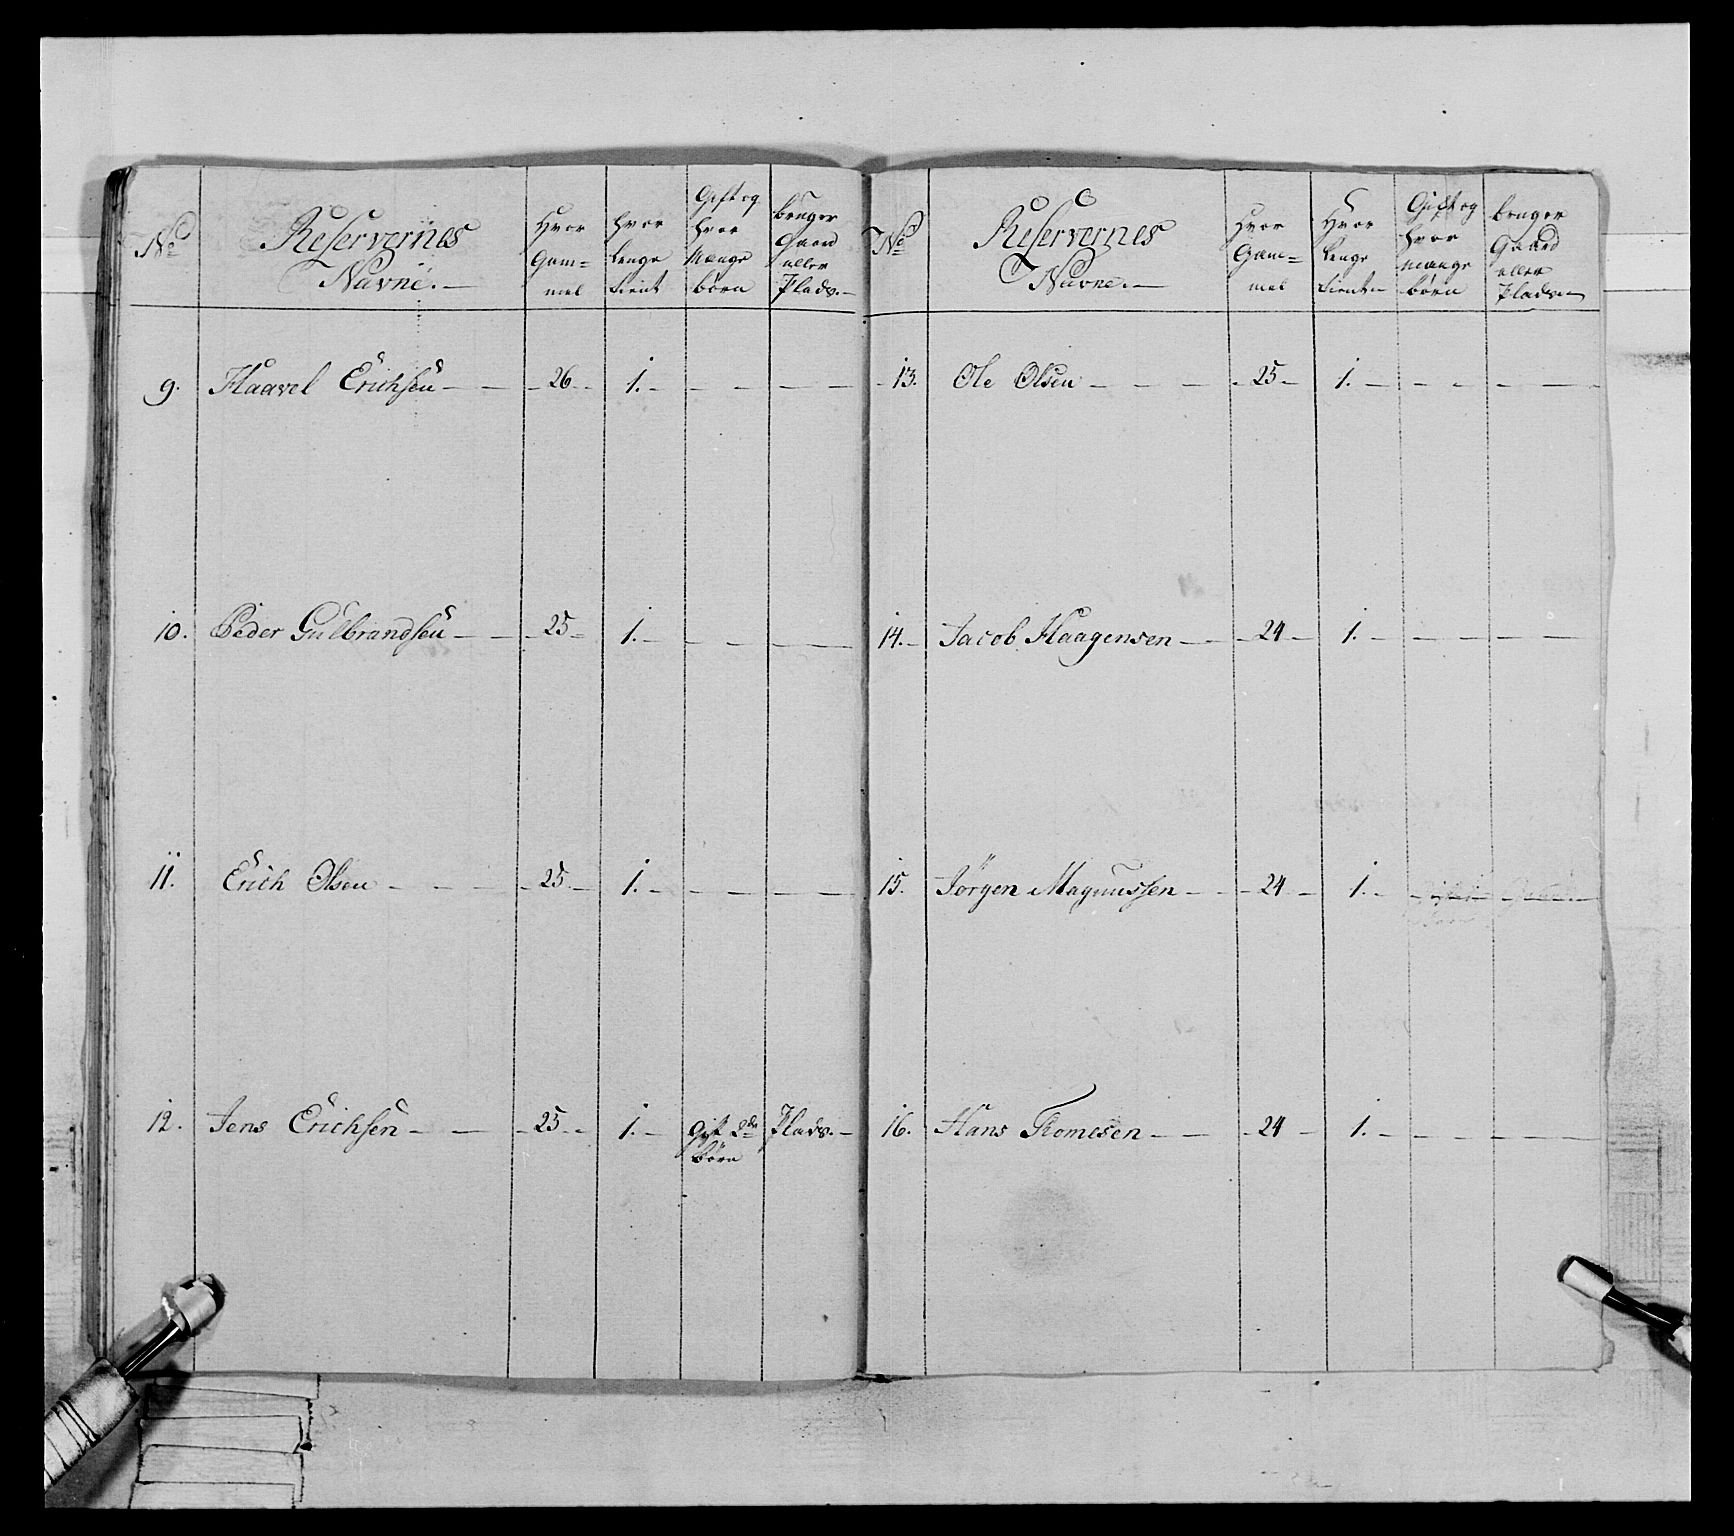 No Reservernes Navne. Hvor Gam= mel hvor lenge tient Gift og hvor mange börn bruger Gaard eller Plads.
9. Haavel Erichsen 26 1.
10. Peder Gulbrandsen 25 1.
11. Erich Olsen 25 1.
12. Jens Erichsen 25 1. Gift 2de börn Plads.
No Reservernes Navne. Hvor Gam= mel Hvor lenge tient Gift og hvor mange börn bruger Gaard eller Plads.
13. Ole Olsen 25 1.
14. Jacob Haagensen 24 1.
15. Jörgen Magnussen 24 1.
16. Hans Tromesen 24 1.